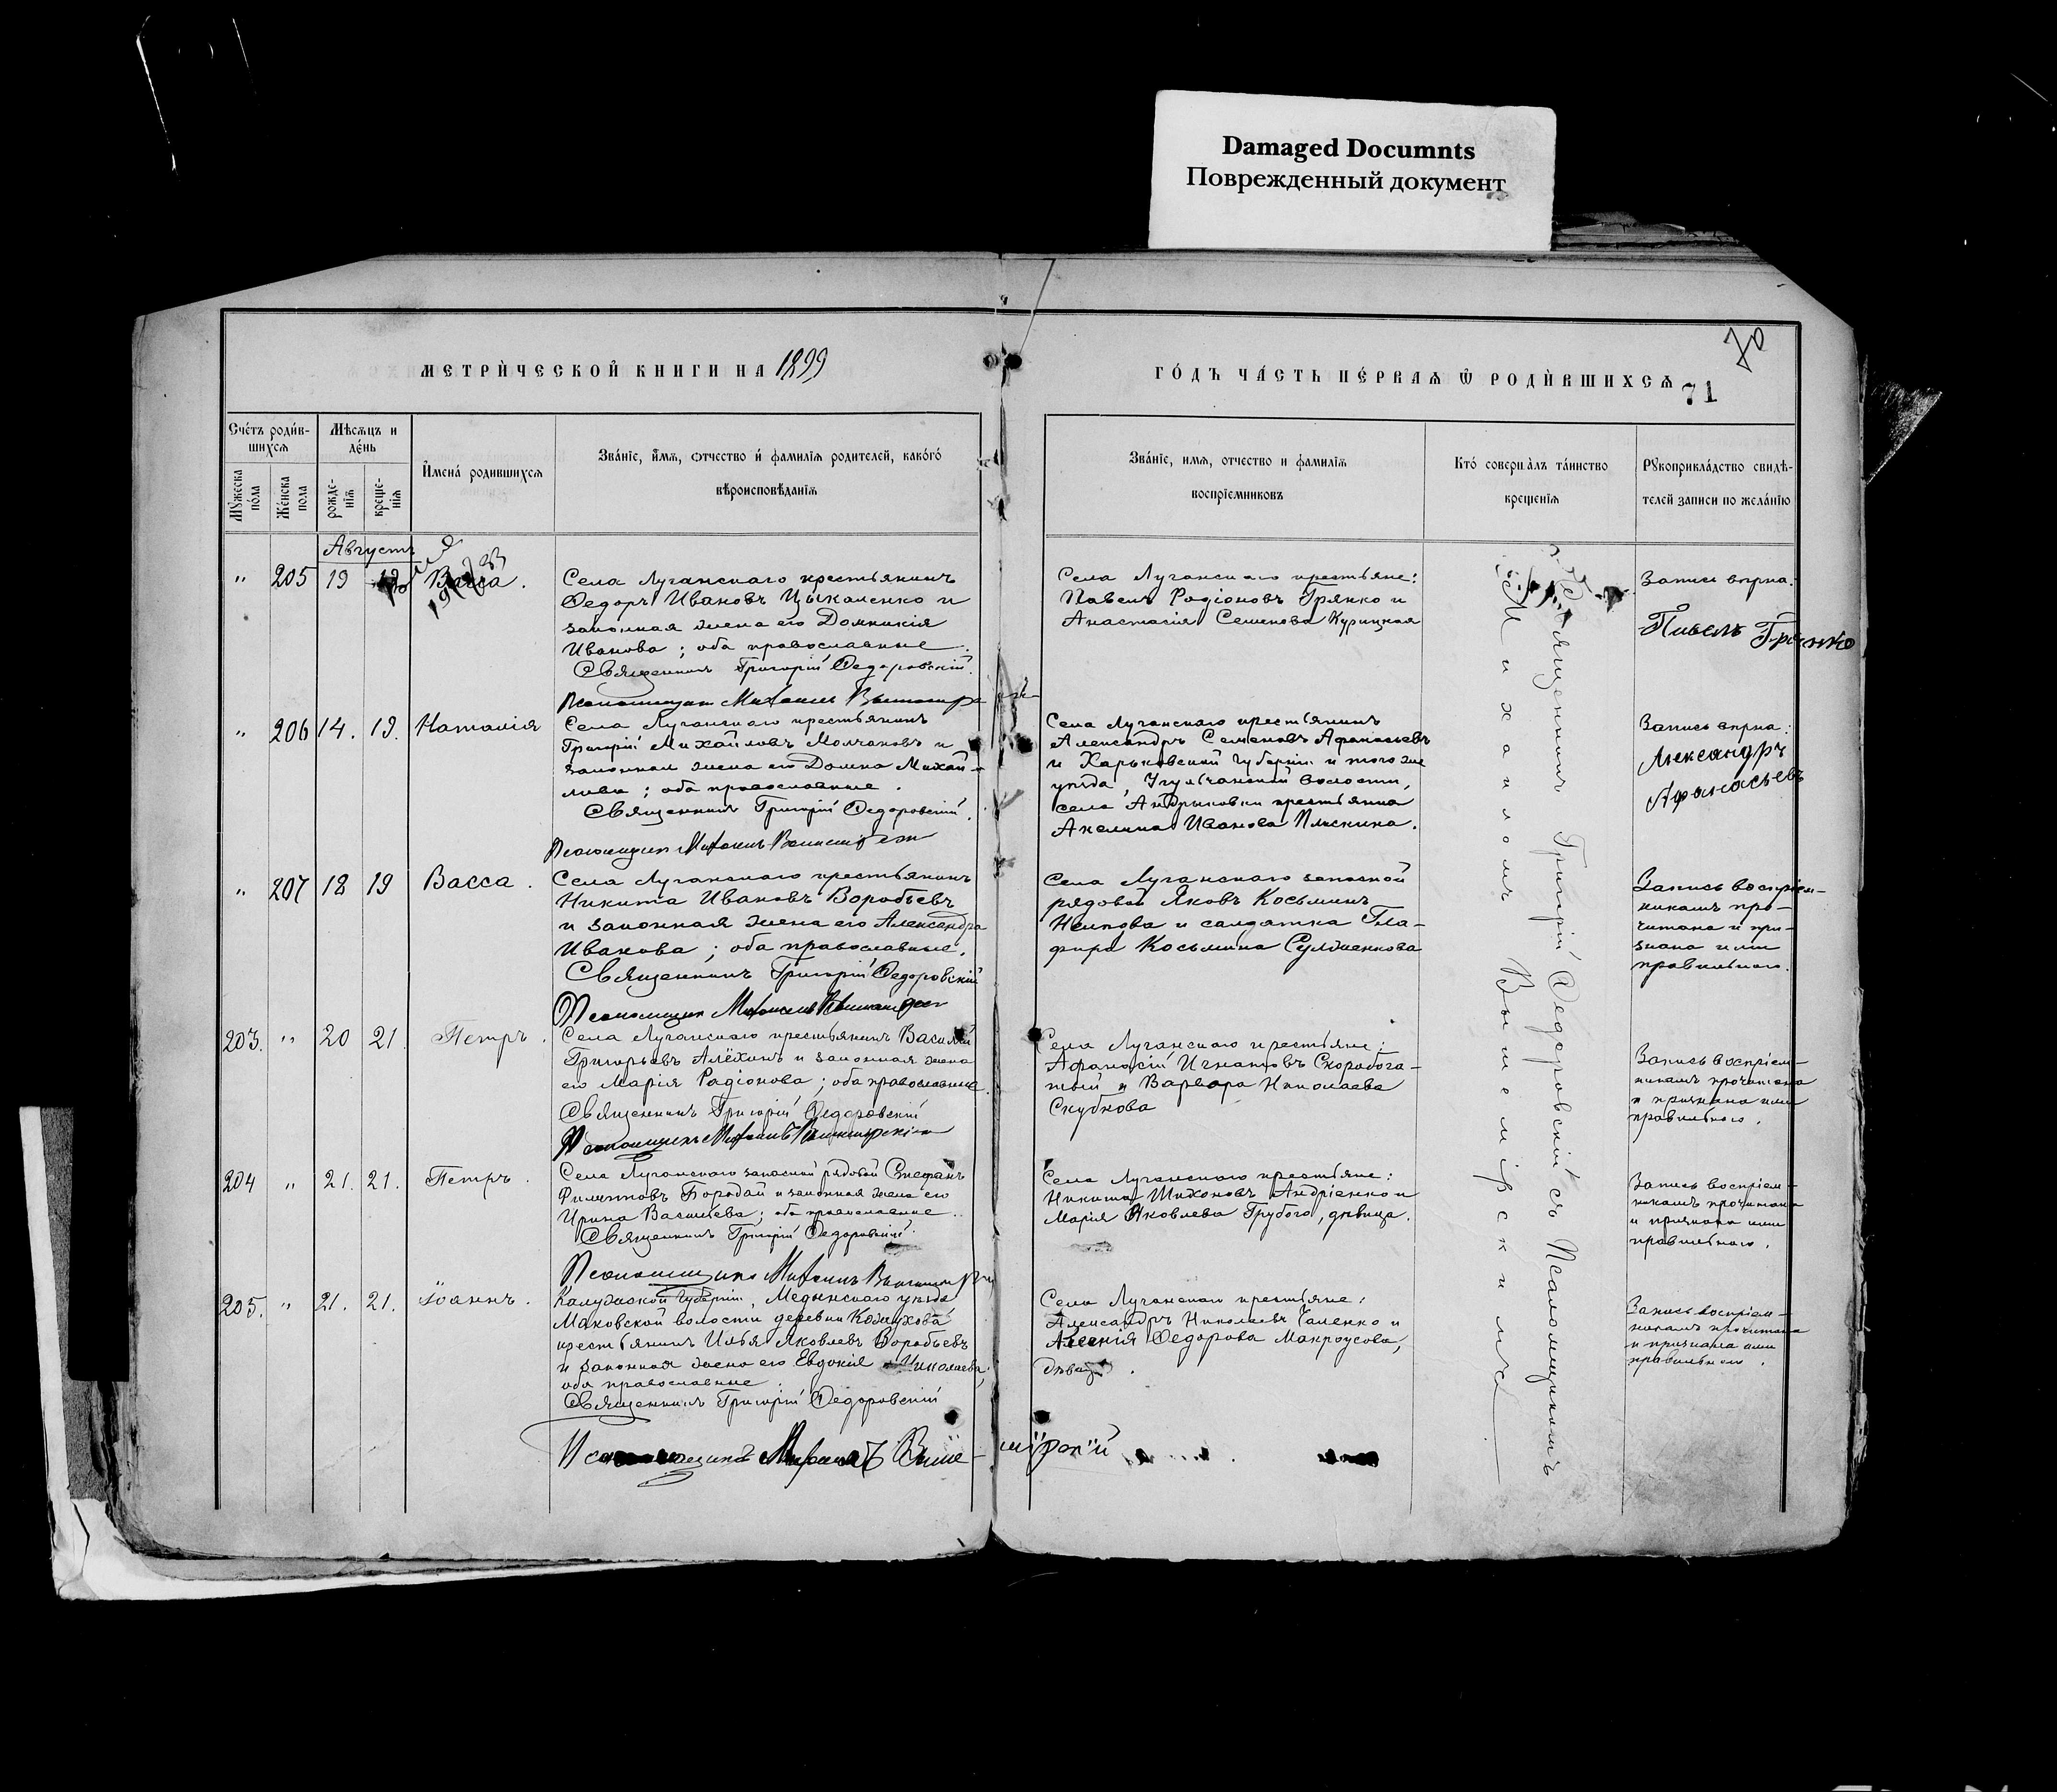 Damaged Documnts
Поврежденный документ
70
МЕТРИ́ЧЕСКОЙ КНИГИ НА 1899
ГО́ДЪ ЧА́СТЬ ПЕ́РВАѦ Ѡ РОДИ́ВШИХСѦ
71
Сче́тъ роди́в-
шихсѧ
Мѣсѧцъ и
де́нь
Мꙋ́жеска
по́ла
Же́нска
пола
рожде-
нїѧ
креще-
нїѧ
И҆мена́ родившихсѧ
Зва́нїе, и҆́мѧ, ѻтчество и҆ фамилїѧ родителей, како́гѡ
вѣроисповѣ́данїѧ
Зва́нїе, имѧ, отчество и фамилїѧ
воспрїемниковъ
Кто́ соверша́лъ та́инство
крещенїѧ
Рꙋкоприкла́дство свидѣ́-
телей записи по жела́нїю
Августъ
" 205 19 Васса.
Села Луганскаго крестьянинъ
Ѳедоръ Ивановъ Цыкаленко и
законная жена его Домникія
Иванова; оба православные.
Священникъ Григорій Ѳедоровскій.
Псаломщикъ Михаилъ
Села Луганскаго крестьяне:
Павелъ Радіоновъ Грянко и
Анастасія Семенова Курицкая
Запись вѣрна:
Павелъ Грянко
" 206 14. 19. Наталія
Села Луганскаго крестьянинъ
Григорій Михайловъ Молчановъ и
законная жена его Домна Михай-
лова; оба православные.
Священникъ Григорій Ѳедоровскій.
Псаломщикъ Михаилъ
Села Луганскаго крестьянинъ
Александръ Семеновъ Афанасьевъ
и Харьковской губерніи и того же
уѣзда, волости,
села крестьянка
Акелина Иванова
Запись вѣрна:
Александръ
Афанасьевъ
" 207 18 19 Васса.
Села Луганскаго крестьянинъ
Никита Ивановъ Воробьевъ
и законная жена его Александра
Иванова; оба православные.
Священникъ Григорій Ѳедоровскій
Псаломщикъ Михаилъ
Села Луганскаго запасной
рядовой Яковъ Косьминъ
и солдатка Гла-
фира Косьмина
Запись воспріем-
никамъ про-
читана и при-
знана ими
правильною.
203. " 20 21 Петръ.
Села Луганскаго крестьянинъ Василій
Григорьевъ Алёхинъ и законная жена
его Марія Радіонова; оба православные.
Священникъ Григорій Ѳедоровскій
Псаломщикъ Михаилъ
Села Луганскаго крестьяне:
Афанасій Игнатовъ Скоробога-
тый и Варвара Николаева
Скубкова
Запись воспріем-
никамъ прочитана
и признана ими
правильною.
204 " 21. 21. Петръ.
Села Луганскаго запасной рядовой Стефанъ
Филипповъ Бородай и законная жена его
Ирина Васильева; оба православные.
Священникъ Григорій Ѳедоровскій.
Псаломщикъ Михаилъ
Села Луганскаго крестьяне:
Никита Тихоновъ Андріенко и
Марія Яковлева Грубого, дѣвица.
Запись воспріем-
никамъ прочитана
и признана ими
правильною.
205. " 21. 21. Іоаннъ.
Калужской губерніи, Медынскаго уѣзда
Маковской волости деревни Кожухова
крестьянинъ Илья Яковлевъ Воробьевъ
и законная жена его Евдокія Николаева;
оба православные.
Священникъ Григорій Ѳедоровскій
Псаломщикъ Михаилъ Выше-
мірскій
Села Луганскаго крестьяне:
Александръ Николаевъ Галенко и
Ксенія Ѳедорова Мокроусова,
дѣвица.
Запись воспріем-
никамъ прочитана
и признана ими
правильною.
Священникъ Григорій Ѳедоровскій съ Псаломщикомъ
Михаиломъ Вышемірскимъ